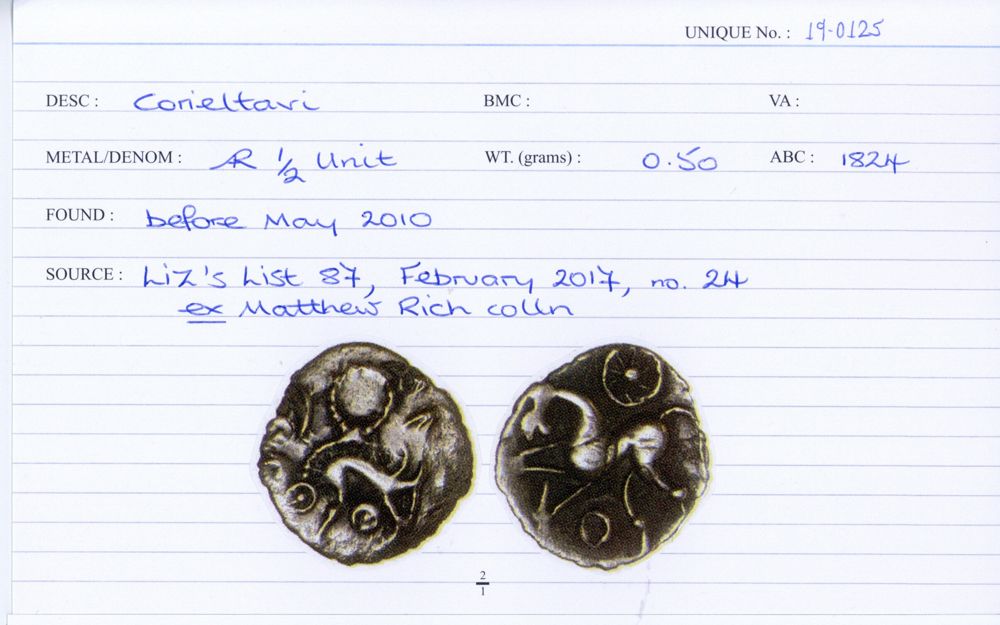 UNIQUE No. : 19-0125
DESC : Corieltavi BMC : VA :
METAL/DENOM : AR ½ Unit WT. (grams) : 0.50 ABC : 1824
FOUND : before May 2010
SOURCE : Liz's List 87, February 2017, no. 24
ex Matthew Rich colln
2
1